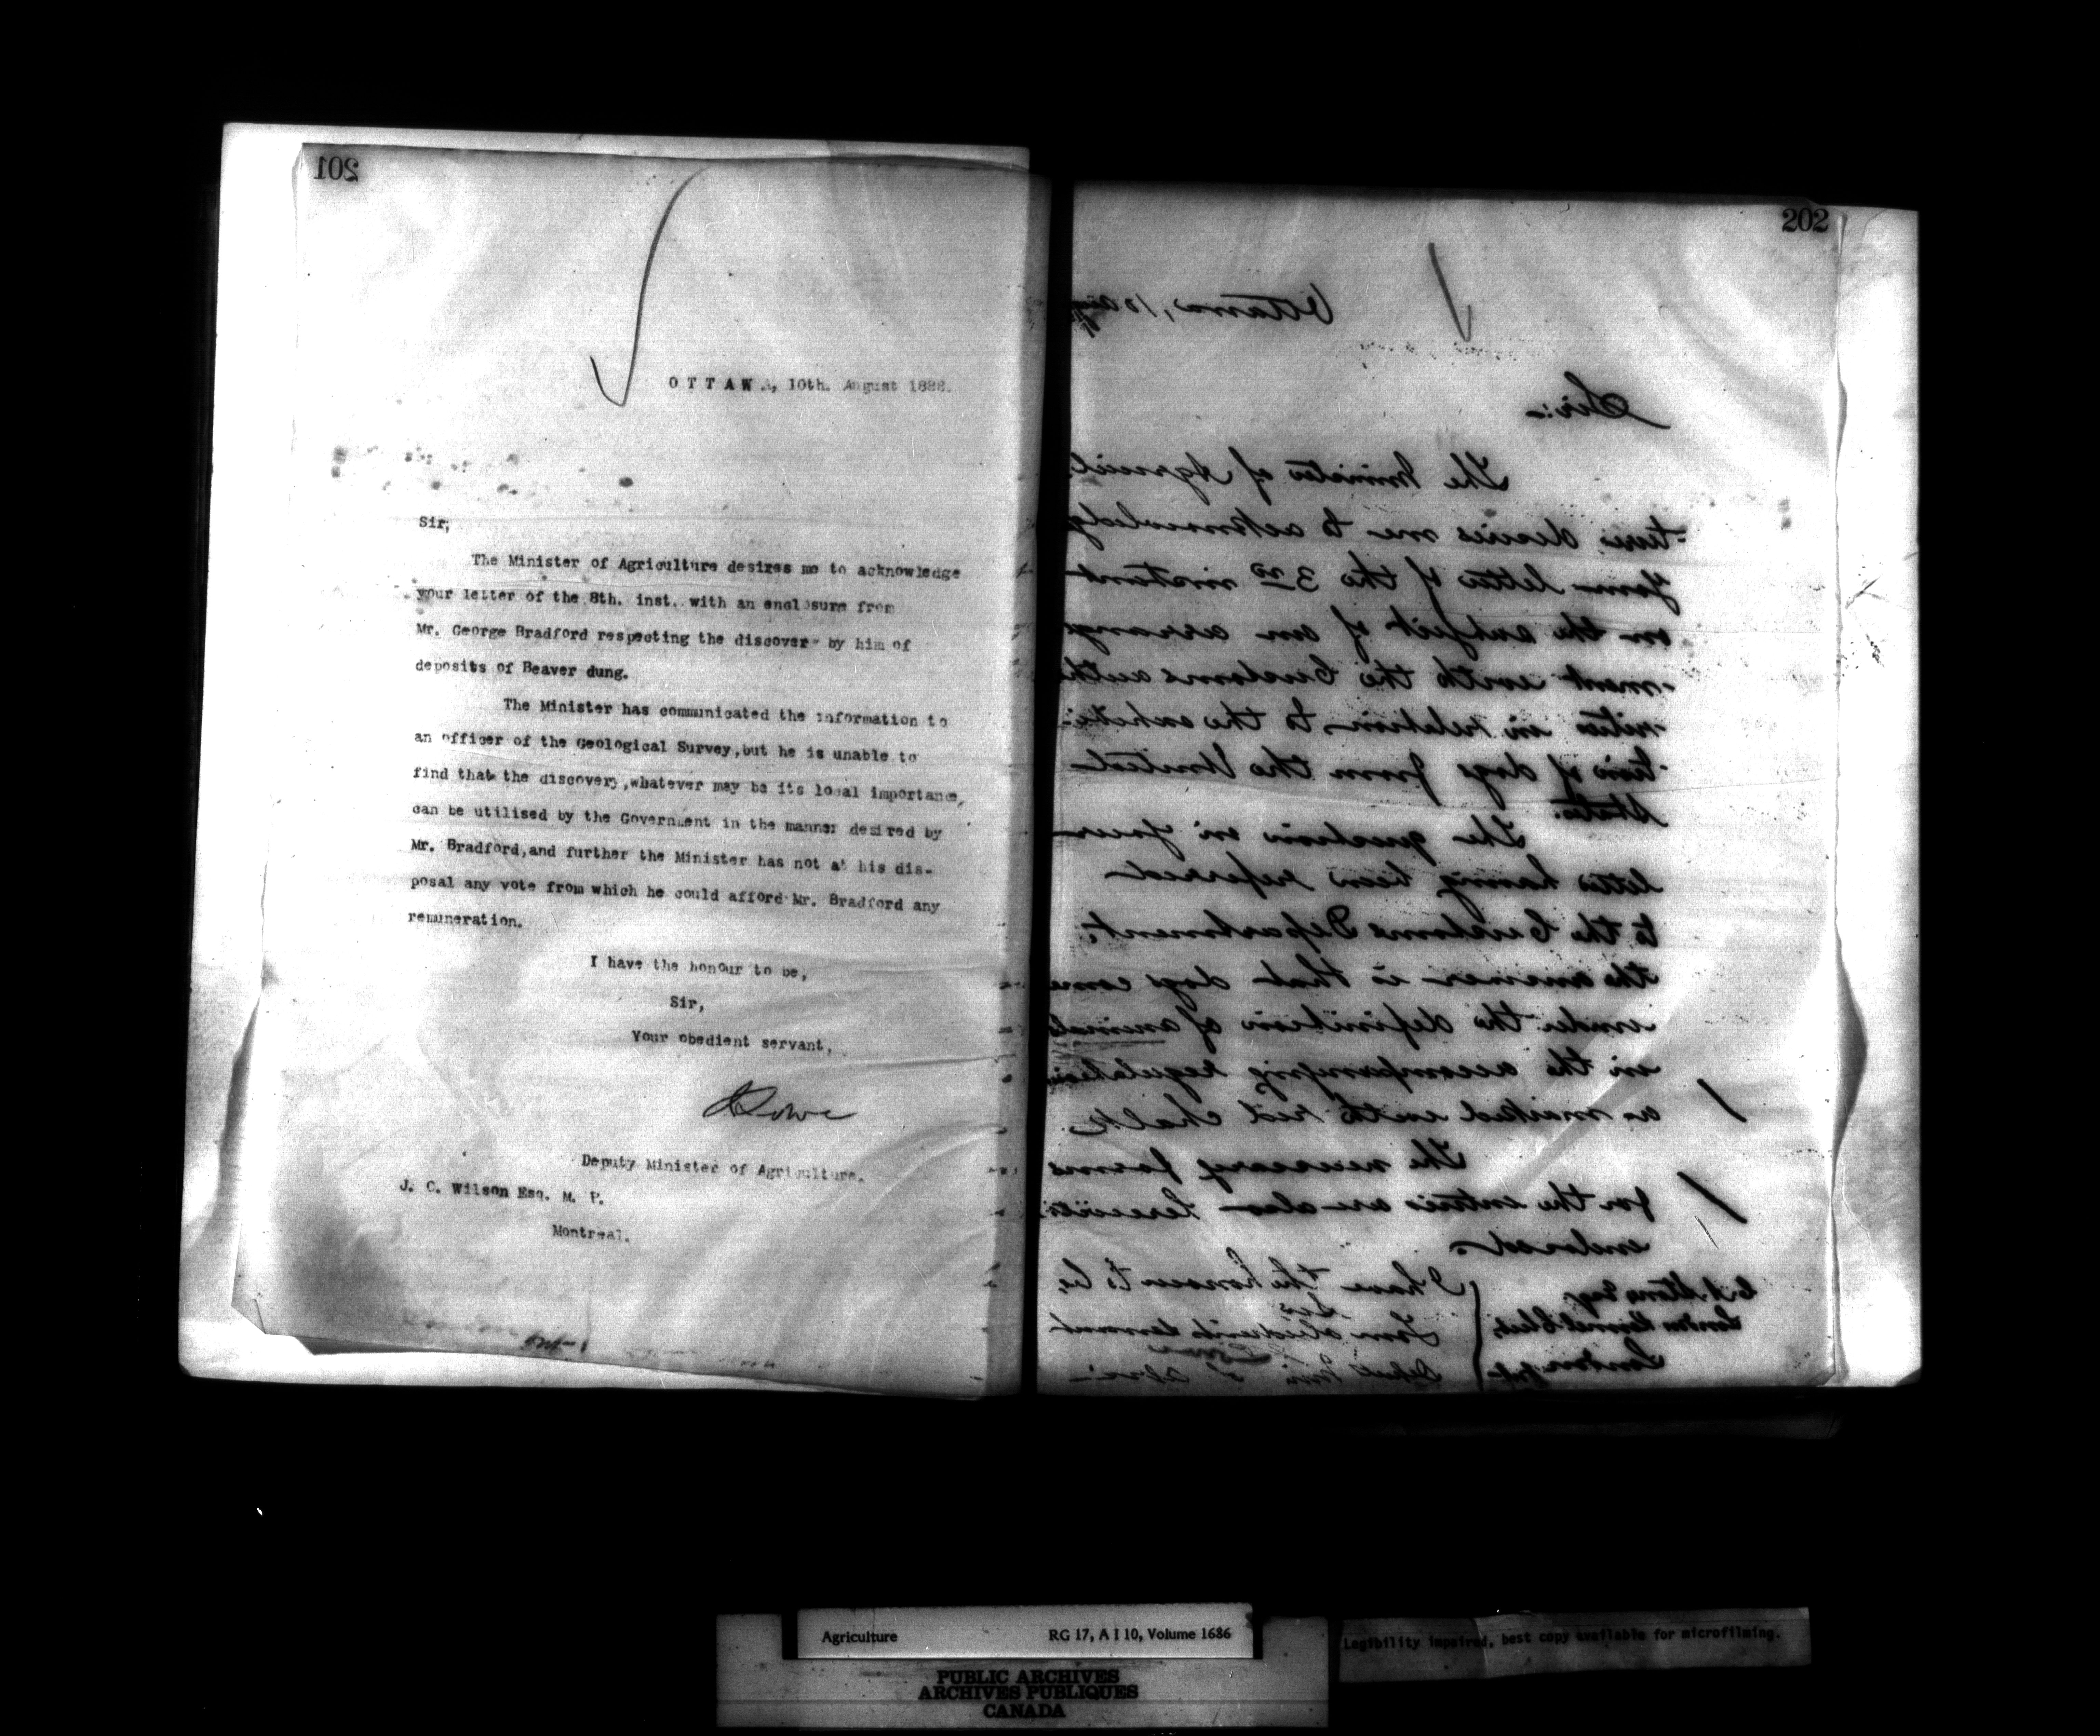 201
OTTAWA, 10th. August 1888.
Sir;
The Minister of Agriculture desires me to acknowledge
your letter of the 8th. inst. with an enclosure from
Mr. George Bradford respecting the discovery by him of
deposits of Beaver dung.
The Minister has communicated the information to
an officer of the Geological Survey,but he is unable to
find that the discovery,whatever may be its local importance,
can be utilised by the Government in the manner desired by
Mr. Bradford,and further the Minister has not at his dis-
posal any vote from which he could afford Mr. Bradford any
remuneration.
I have the honour to be,
Sir,
Your obedient servant,
JLowe
Deputy Minister of Agriculture.
J. C. Wilson Esq. M. P.
Montreal.
202
Ottawa, 10 Aug
Sir:-
The Minister of Agricul
-ture desires me to acknowledge
your letter of the 3rd instant
on the subject of an arrange
-ment with the Customs autho
-rities in relation to the exhibi-
-tion of dogs from the United
States.
The question in your
letter having been referred
to the Customs Department,
the answer is that dogs come
under the definition of animals
in the accompanying regulations
as marked with red chalk.
The necessary forms
for the entries are also herewith
enclosed.
I have the honour to be,
Sir
Your obedient servant
Lowe
C. A. Stone Esq.
London Kennel Club,
London
Agriculture RG 17, A I 10, Volume 1686
PUBLIC ARCHIVES
ARCHIVES PUBLIQUES
CANADA
Legibility impaired, best copy available for microfilming.